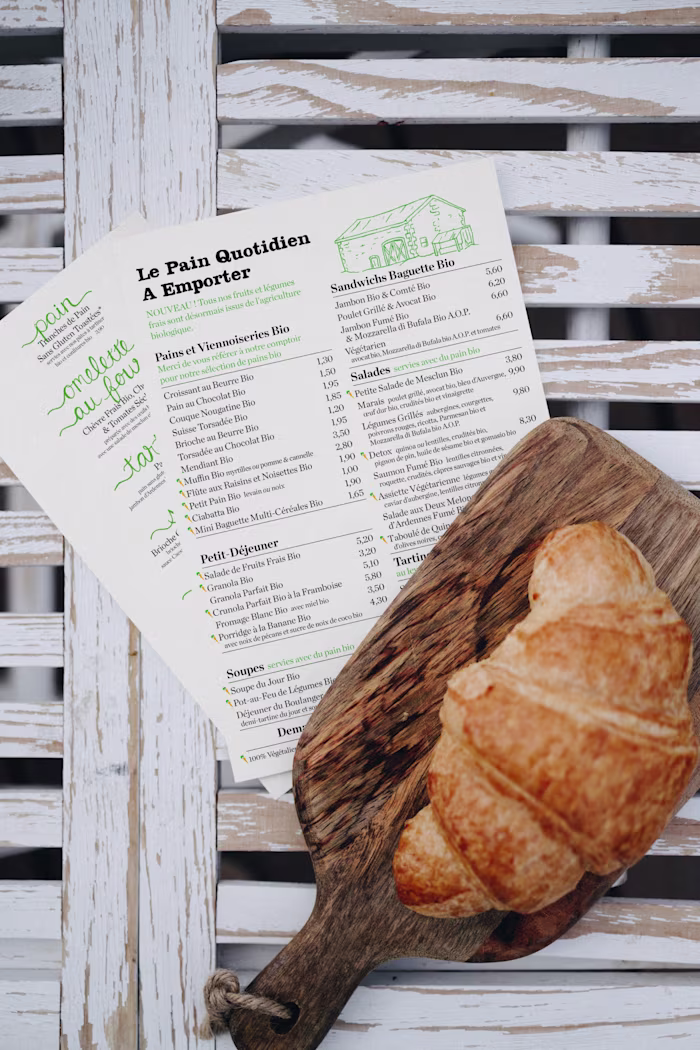 pain
Tranches de Pain
Sans Gluten Toastées*
omelette
au four
Chèvre Frais Bio, Ch
& Tomates Sé
tar
Brioche
Le Pain Quotidien
A Emporter
NOUVEAU ! Tous nos fruits et légumes
frais sont désormais issus de l'agriculture
biologique.
Pains et Viennoiseries Bio
Merci de vous référer à notre comptoir
pour notre sélection de pains bio
Croissant au Beurre Bio 1,30
Pain au Chocolat Bio 1,50
Couque Nougatine Bio 1,95
Suisse Torsadée Bio 1,85
Brioche au Beurre Bio 1,20
Torsadée au Chocolat Bio 1,95
Mendiant Bio 3,50
Muffin Bio myrtilles ou pomme & cannelle 2,80
Flûte aux Raisins et Noisettes Bio 1,90
Petit Pain Bio levain ou noix 1,00
Ciabatta Bio 1,90
Mini Baguette Multi-Céréales Bio 1,65
Petit-Déjeuner
Salade de Fruits Frais Bio 5,20
Granola Bio 3,20
Granola Parfait Bio 5,10
Crunola Parfait Bio à la Framboise 5,80
Fromage Blanc Bio avec miel bio 3,50
Porridge à la Banane Bio 4,30
avec noix de pécans et sucre de noix de coco bio
Soupes servies avec du pain bio
Soupe du Jour Bio
Pot-au-Feu de Légumes Bio
Déjeuner du Boulanger
demi-tartine du jour et
Dema
100% Végétalie
Sandwichs Baguette Bio
Jambon Bio & Comté Bio 5,60
Poulet Grillé & Avocat Bio 6,20
Jambon Fumé Bio 6,60
& Mozzarella di Bufala Bio A.O.P.
Végétarien 6,60
avocat bio, Mozzarella di Bufala Bio A.O.P. et tomates
Salades servies avec du pain bio
Petite Salade de Mesclun Bio 3,80
Marais poulet grillé, avocat bio, bleu d'Auvergne, 9,90
œuf dur bio, crudités bio et vinaigrette
Légumes Grillés aubergines, courgettes, 9,80
poivrons rouges, ricotta, Parmesan Bio et
Mozzarella di Bufala Bio A.O.P.
Detox quinoa ou lentilles, crudités bio, 8,30
pignon de pin, huile de sésame bio et gomasio bio
Saumon Fumé Bio lentilles, citronnée,
roquette, crudités, câpres sauvages bio et
Assiette Végétarienne légumes
caviar d'aubergine, lentilles citronnées
Salade aux Deux Melon
d'Ardennes Fumé B
Taboulé de Quin
d'olives noires,
Tartin
au le